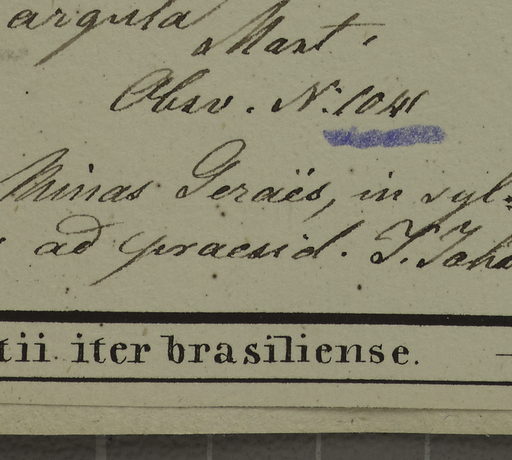 argula
Mart.
Obsv. N: 1041
Minas Geraës, in syl-
ad praesid. S. Joha
tii iter brasiliense.